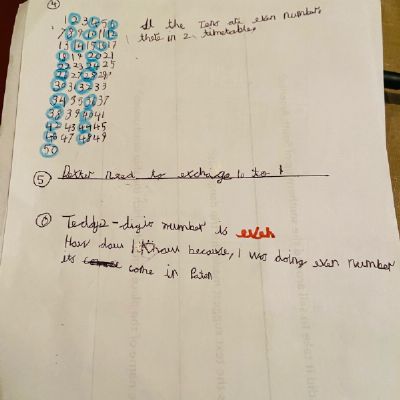 4
1 2 3 4 5 6 All the Tens are even numbers
7 8 9 10 11 12 there in 2 timetables
13 14 15 16 17
18 19 20 21
22 23 24 25
26 27 28 29
30 31 32 33
34 35 36 37
38 39 40 41
42 43 44 45
46 47 48 49
50
5 need to exchange 10 to 1
6 Teddy 2-digit number is even
How dows I know because, I was doing even number
its come in